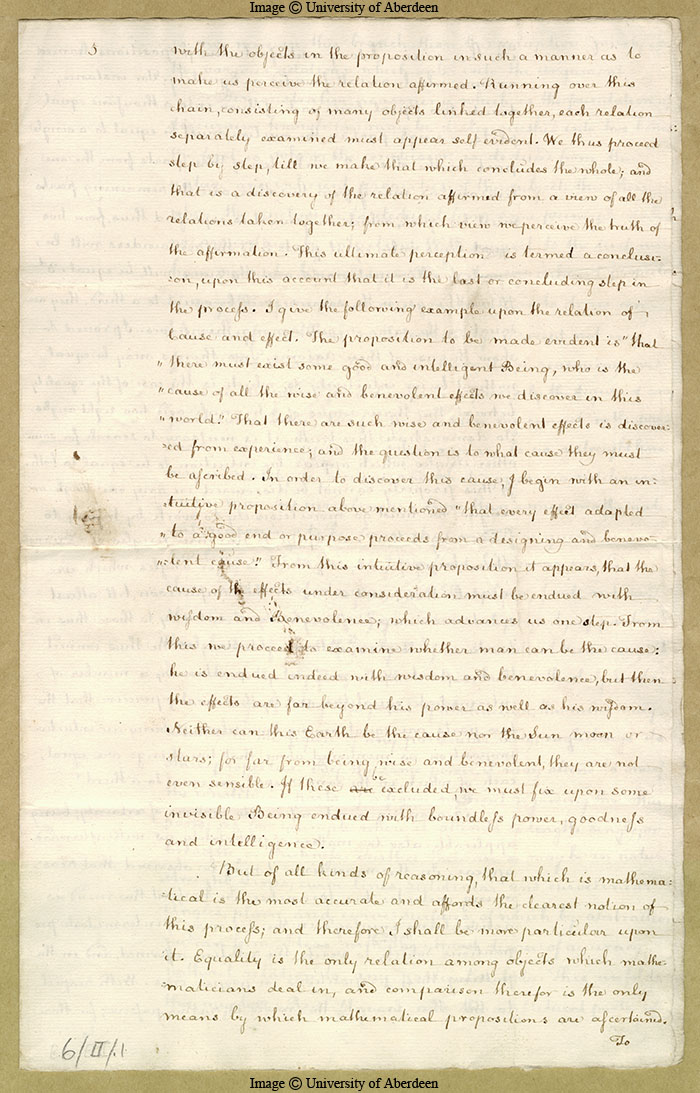 Image © University of Aberdeen
3
with the objects in the proposition in such a manner as to
make us perceive the relation affirmed. Running over this
chain, consisting of many objects linked together, each relation
separately examined must appear self evident. We thus proceed
step by step, till we make that which concludes the whole; and
that is a discovery of the relation affirmed from a view of all the
relations taken together; from which view we perceive the truth of
the affirmation. This ultimate perception is termed a conclusi-
on, upon this account that it is the last or concluding step in
the process. I give the following example upon the relation of
Cause and effect. The proposition to be made evident is "that
"there must exist some good and intelligent Being, who is the
"cause of all the wise and benevolent effects we discover in this
"world." That there are such wise and benevolent effects is discover-
-ed from experience; and the question is to what cause they must
be ascribed. In order to discover this cause, I begin with an in-
-tuitive proposition above mentioned "that every effect adapted
"to a good end or purpose proceeds from a designing and benevo-
"-lent cause." From this intuitive proposition it appears, that the
cause of the effects under consideration must be endued with
wisdom and Benevolence; which advances us one step. From
this we proceed to examine whether man can be the cause:
he is endued indeed with wisdom and benevolence, but then
the effects are far beyond his power as well as his wisdom.
Neither can this Earth be the cause nor the Sun moon or
stars; for far from being wise and benevolent, they are not
even sensible. If these are be excluded, we must fix upon some
invisible Being endued with boundless power, goodness
and intelligence.
But of all kinds of reasoning, that which is mathema-
-tical is the most accurate and affords the clearest notion of
this process; and therefore I shall be more particular upon
it. Equality is the only relation among objects which mathe-
maticians deal in, and comparison therefor is the only
means by which mathematical propositions are ascertained.
To
6/II/.1
Image © University of Aberdeen